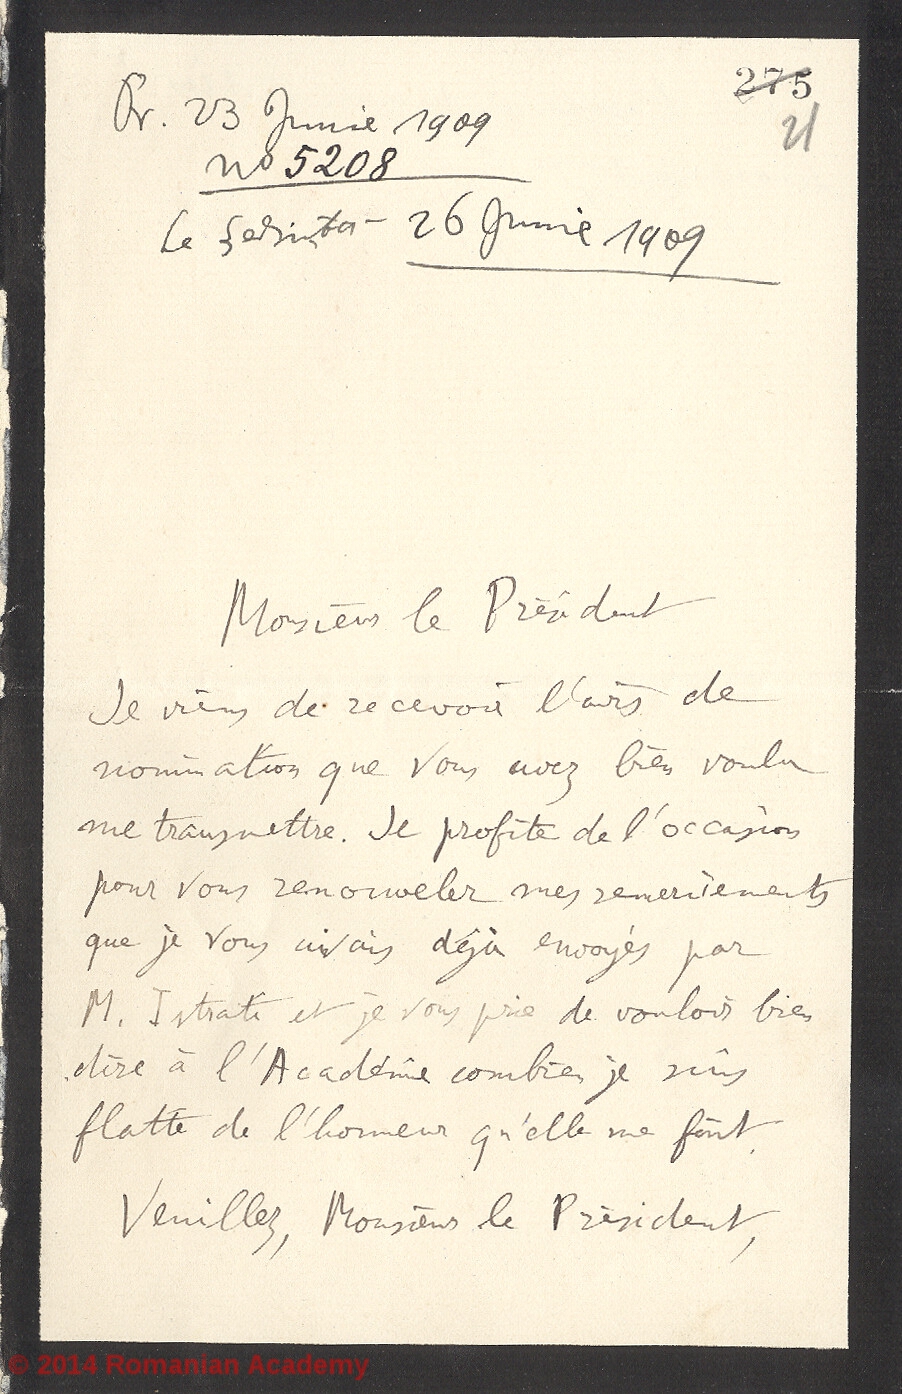 275
21
Pr. 23 Junie 1909
no 5208
26 Junie 1909
Monsieur le Président
Je viens de recevoir l'avis de
nomination que vous avez bien voulu
me transmettre. Je profite de l'occasion
pour vous renouveler mes remerciements
que je vous avais déjà envoyés par
M. Istrati et je vous prie de vouloir bien
dire à l'Académie combien je suis
flatté de l'honneur qu'elle me fait.
Veuillez, Monsieur le Président,
© 2014 Romanian Academy